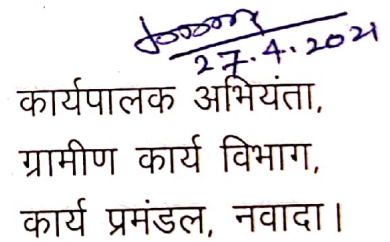 27.4.2021
कार्यपालक अभियंता,
ग्रामीण कार्य विभाग,
कार्य प्रमंडल, नवादा।